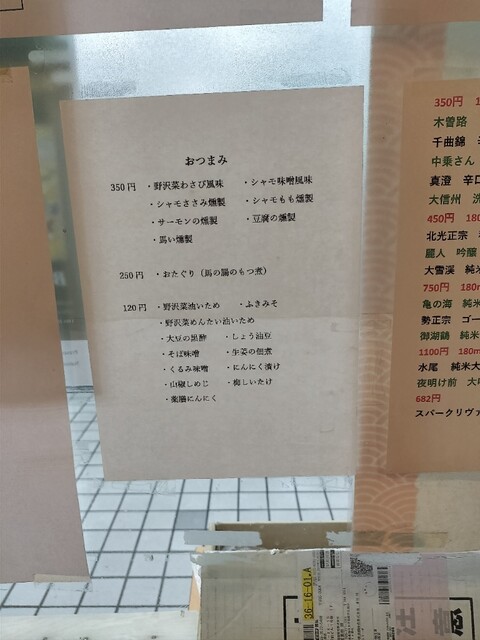 おつまみ
350円 ・野沢菜わさび風味 ・シャモ味噌風味
・シャモささみ燻製 ・シャモもも燻製
・サーモンの燻製 ・豆腐の燻製
・馬い燻製
250円 ・おたぐり（馬の腸のもつ煮）
120円 ・野沢菜油いため ・ふきみそ
・野沢菜めんたい油いため
・大豆の黒酢 ・しょう油豆
・そば味噌 ・生姜の佃煮
・くるみ味噌 ・にんにく漬け
・山椒しめじ ・梅しいたけ
・薬膳にんにく
350円 1
木曽路
千曲錦
中乗さん
真澄 辛口
大信州 洗
450円 180
北光正宗
麗人 吟醸
大雪渓 純米
750円 180m
亀の海 純米
勢正宗 ゴー
御湖鶴 純米
1100円 180m
水尾 純米大
夜明け前 大吟
682円
スパークリヴァ
36-16-01.A
注
意